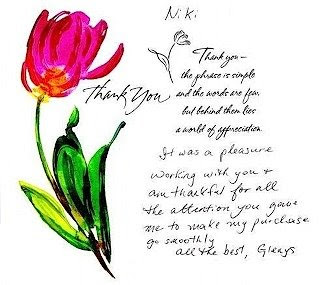 Niki
Thank You
Thank you—
the phrase is simple
and the words are few,
but behind them lies
a world of appreciation.
It was a pleasure
working with you &
am thankful for all
the attention you gave
me to make my purchase
go smoothly
all the best, Glenys